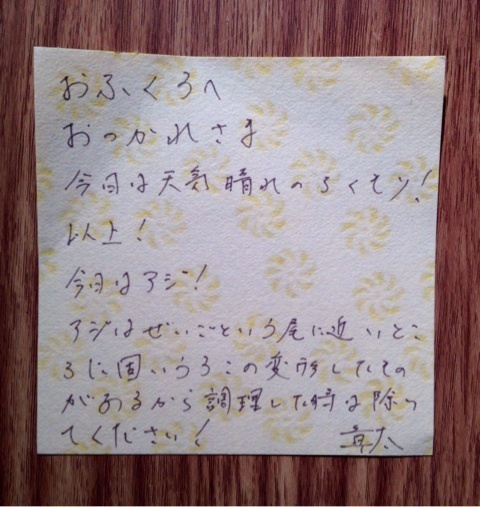 おふくろへ
おつかれさま
今日は天気晴れのちくもり!
以上!
今日はアジ!
アジはぜいごという尾に近いとこ
ろに固いうろこの変形したもの
があるから調理した時は除っ
てください!
太